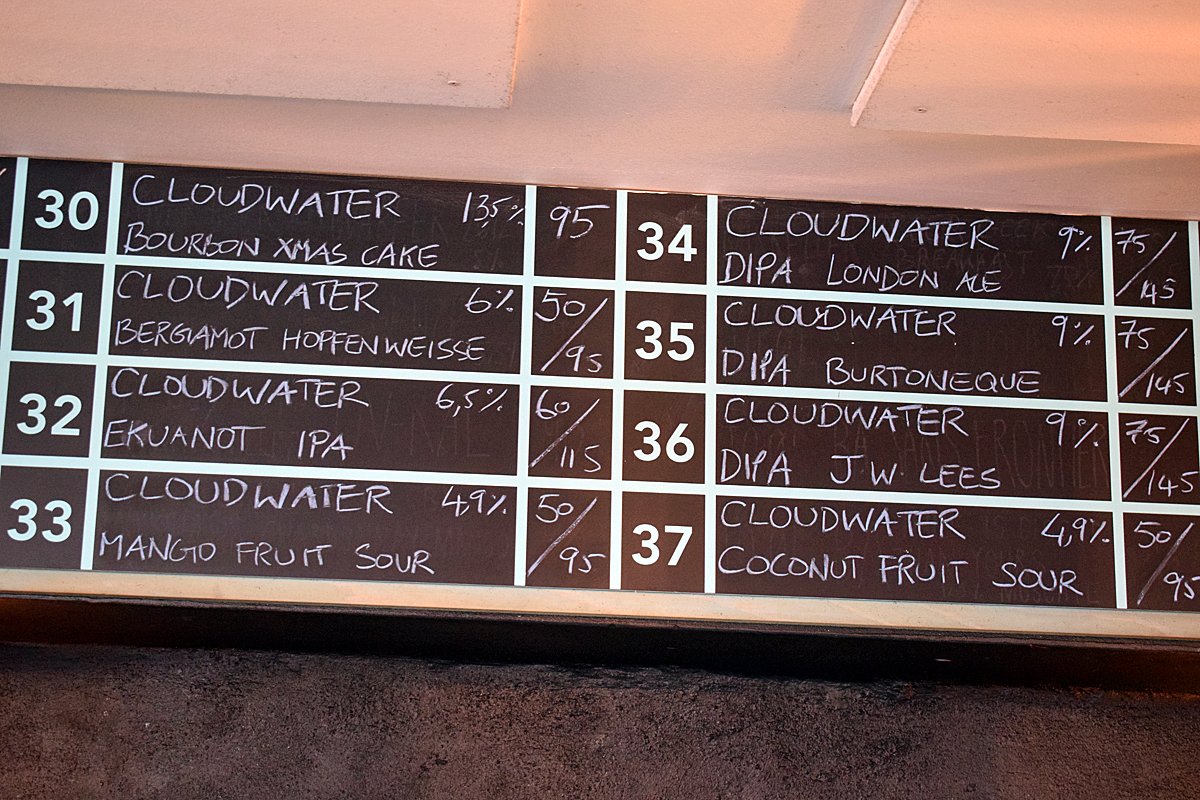 30 CLOUDWATER 13,5% 95
BOURBON XMAS CAKE
31 CLOUDWATER 6% 50/95
BERGAMOT HOPFENWEISSE
32 CLOUDWATER 6,5% 60/115
EKUANOT IPA
33 CLOUDWATER 4,9% 50/95
MANGO FRUIT SOUR
34 CLOUDWATER 9% 75/145
DIPA LONDON ALE
35 CLOUDWATER 9% 75/145
DIPA BURTONEQUE
36 CLOUDWATER 9% 75/145
DIPA J.W. LEES
37 CLOUDWATER 4,9% 50/95
COCONUT FRUIT SOUR